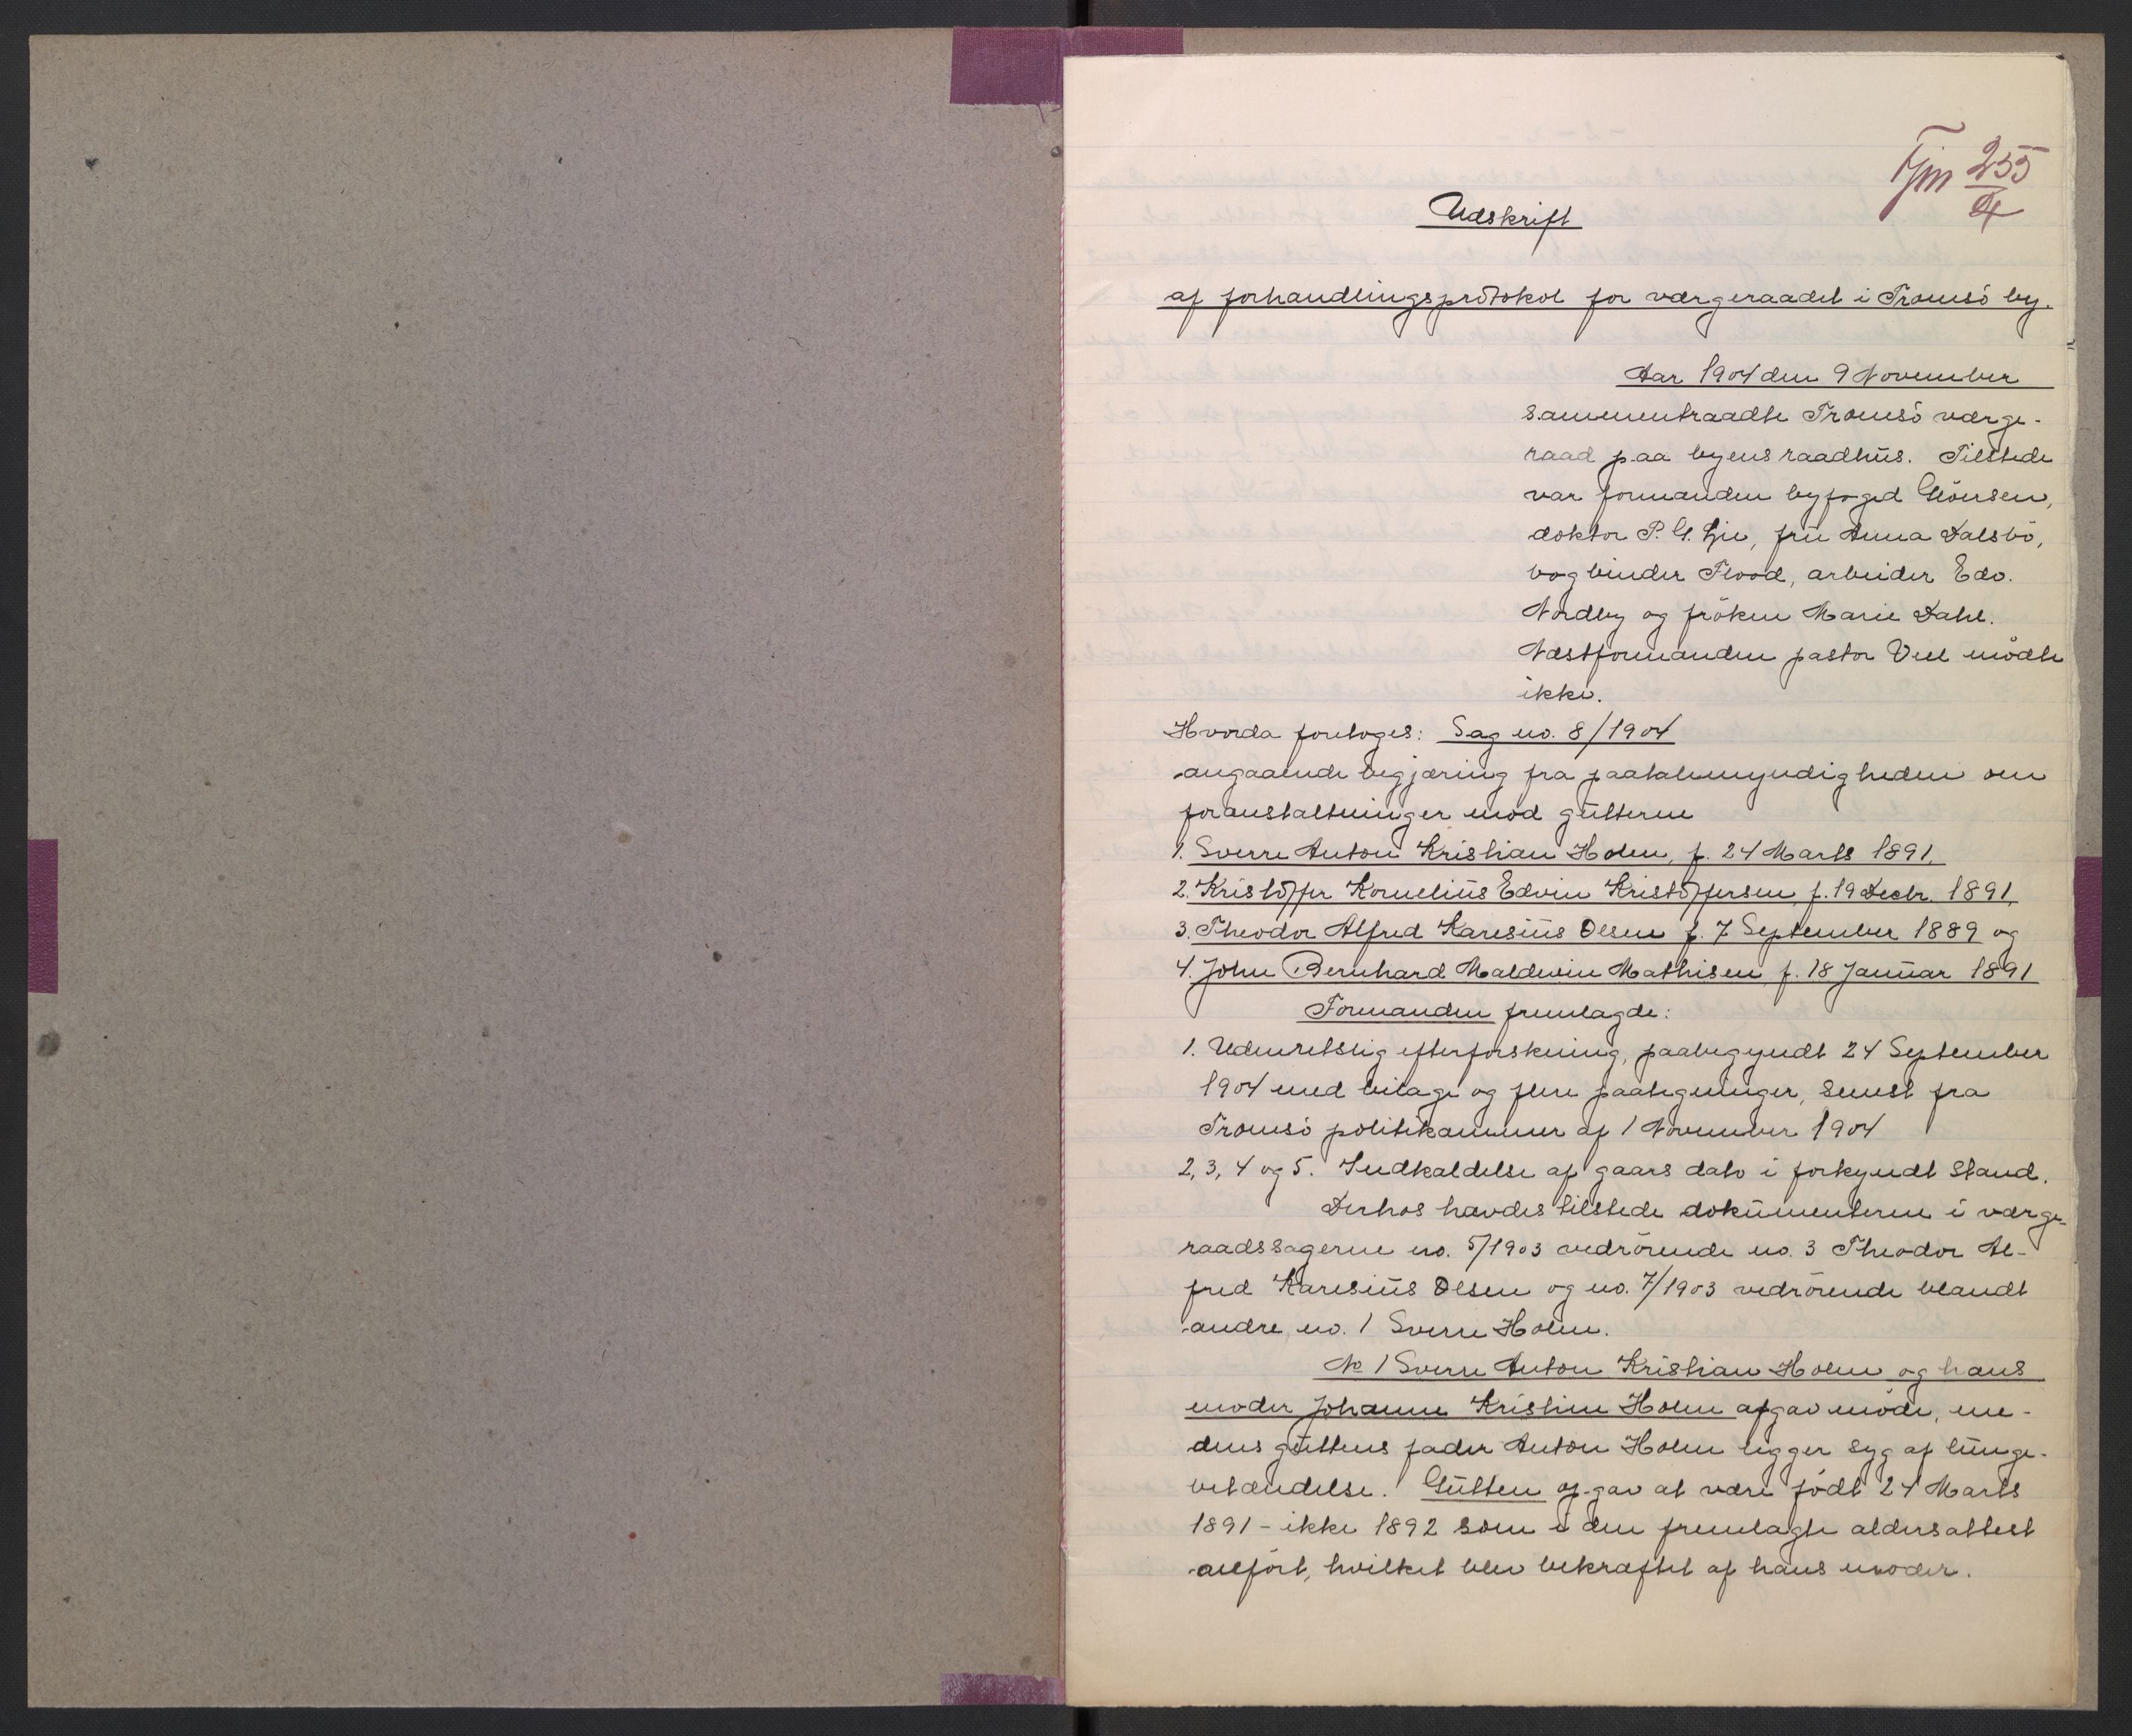 Fjm 255/4
Udskrift
af forhandlingsprotokol for værgeraadet i Tromsö by.
Aar 1904 den 9 November
sammentraadte Tromsö værge-
raad paa byens raadhus. Tilstede
var formanden byfoged Glörsen,
doktor P. G. Lie, fru Anna Dalsbö,
bogbinder Flood, arbeider Edv.
Nordby og fröken Marie Dahl.
Næstformanden pastor Veel mödte
ikke.
Hvorda foretoges: Sag no. 8/1904
angaaende begjæring fra paatalemyndigheden om
foranstaltninger mod gutterne
1. Sverre Anton Kristian Holm, f. 24 Marts 1891,
2. Kristoffer Kornelius Edvin Kristoffersen f. 19 Decbr. 1891,
3. Theodor Alfred Karesius Olsen f. 7 September 1889 og
4. John Bernhard Maldevin Mathisen f. 18 Januar 1891
Formanden fremlagde:
1. Udenretslig efterforskning, paabegyndt 24 September
1904 med bilage og flere paategninger, senest fra
Tromsö politikammer af 1 November 1904
2, 3, 4 og 5. Indkaldelse af gaars dato i forkyndt stand.
Derhos havdes tilstede dokumenterne i værge-
raadssagerne no. 5/1903 vedrörende no. 3 Theodor Al-
fred Karesius Olsen og no. 7/1903 vedrörende blandt
andre no. 1 Sverre Holm.
No 1 Sverre Anton Kristian Holm og hans
moder Johanne Kristine Holm afgav möde, me-
dens guttens fader Anton Holm ligger syg af lunge-
betændelse. Gutten opgav at være födt 24 Marts
1891 - ikke 1892 som i den fremlagte aldersattest
anfört, hvilket blev bekræftet af hans moder.